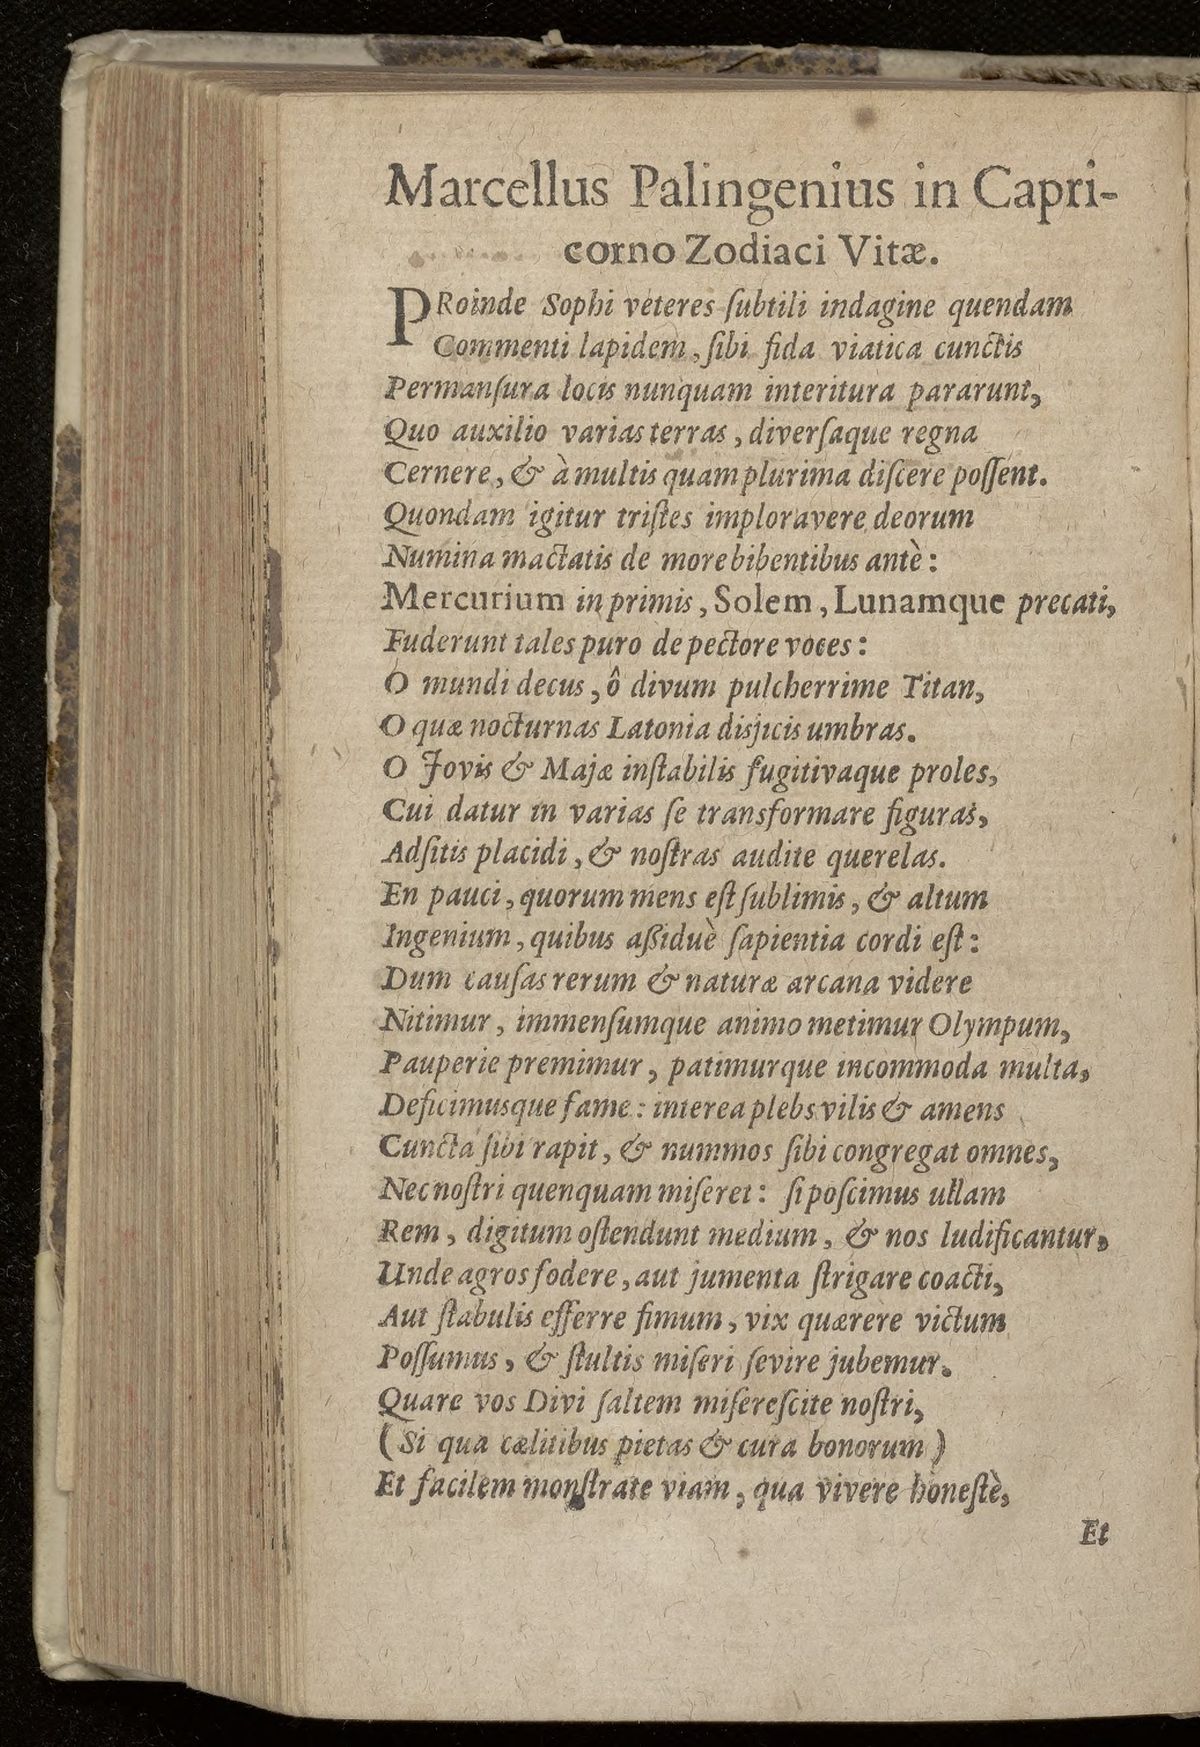 Marcellus Palingenius in Capri-
corno Zodiaci Vitæ.
PRoinde Sophi veteres ſubtili indagine quendam
Commenti lapidem, ſibi fida viatica cunctis
Permanſura locis nunquam interitura pararunt,
Quo auxilio varias terras, diverſaque regna
Cernere, & à multis quamplurima diſcere poſſent.
Quondam igitur triſtes imploravere deorum
Numina mactatis de more bibentibus antè:
Mercurium in primis, Solem, Lunamque precati,
Fuderunt tales puro de pectore voces:
O mundi decus, ô divum pulcherrime Titan,
O quæ nocturnas Latonia disjicis umbras.
O Jovis & Majæ inſtabilis fugitivaque proles,
Cui datur in varias ſe transformare figuras,
Adſitis placidi, & noſtras audite querelas.
En pauci, quorum mens eſt ſublimis, & altum
Ingenium, quibus aßiduè ſapientia cordi eſt:
Dum cauſas rerum & naturæ arcana videre
Nitimur, immenſumque animo metimur Olympum,
Pauperie premimur, patimurque incommoda multa,
Deficimusque fame: interea plebs vilis & amens
Cuncta ſibi rapit, & nummos ſibi congregat omnes,
Nec noſtri quenquam miſeret: ſi poſcimus ullam
Rem, digitum oſtendunt medium, & nos ludificantur,
Unde agros fodere, aut jumenta ſtrigare coacti,
Aut ſtabulis efferre fimum, vix quærere victum
Poſſumus, & ſtultis miſeri ſevire jubemur.
Quare vos Divi ſaltem miſereſcite noſtri,
(Si qua cælitibus pietas & cura bonorum)
Et facilem monſtrate viam, qua vivere honeſtè,
Et